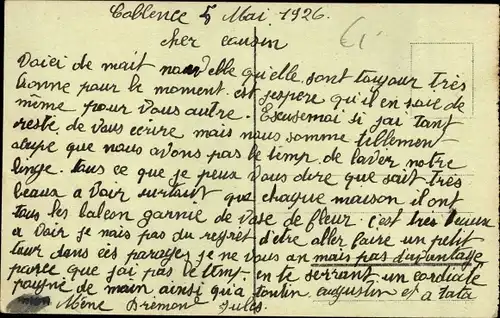 Coblence 5 Mai 1926.
cher cousin
Voici de mait nouvelle qu'elle sont toujour très
bonne pour le moment. et j'espere qu'il en soie de
même pour vous autre. Excusemai si j'ai tant
resté de vous ecrire mais nous somme tellement
ocupe que nous avons pas le temp. de laver notre
linge. tous ce que je peux vous dire que sait très
beaux a voir surtout que chaque maison il ont
tous les balcon garnie de vase de fleur. c'est très
a voir je nais pas du regret d'être aller faire un petit
tour dans ces parages je ne vous an mais pas d'avantage
parce que j'ai pas le temp. en te serrant un cordiale
poigné de main ainsi qu'a tonton augustin et a tata
Mène Drémon Jules.